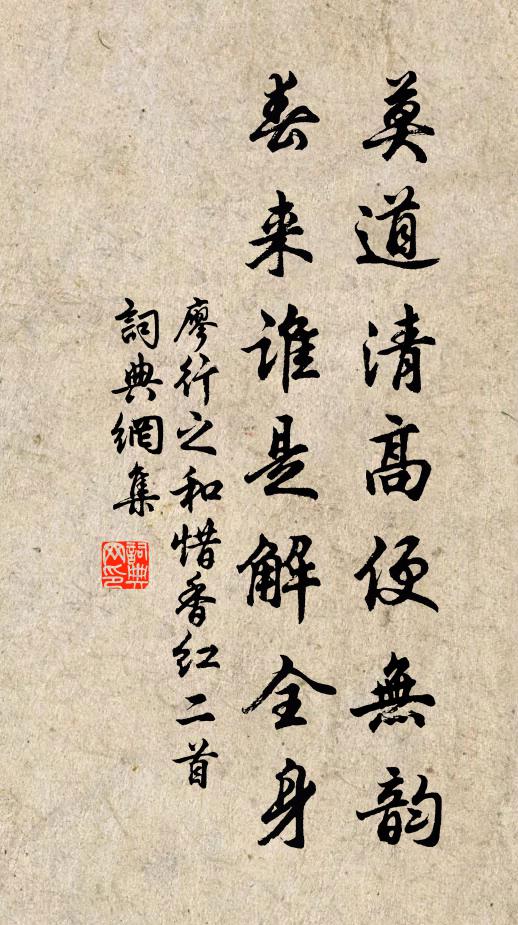 莫道清高便無韵
春来誰是解全身
廖行之和惜香紅二首
詞典網集
詞典网印